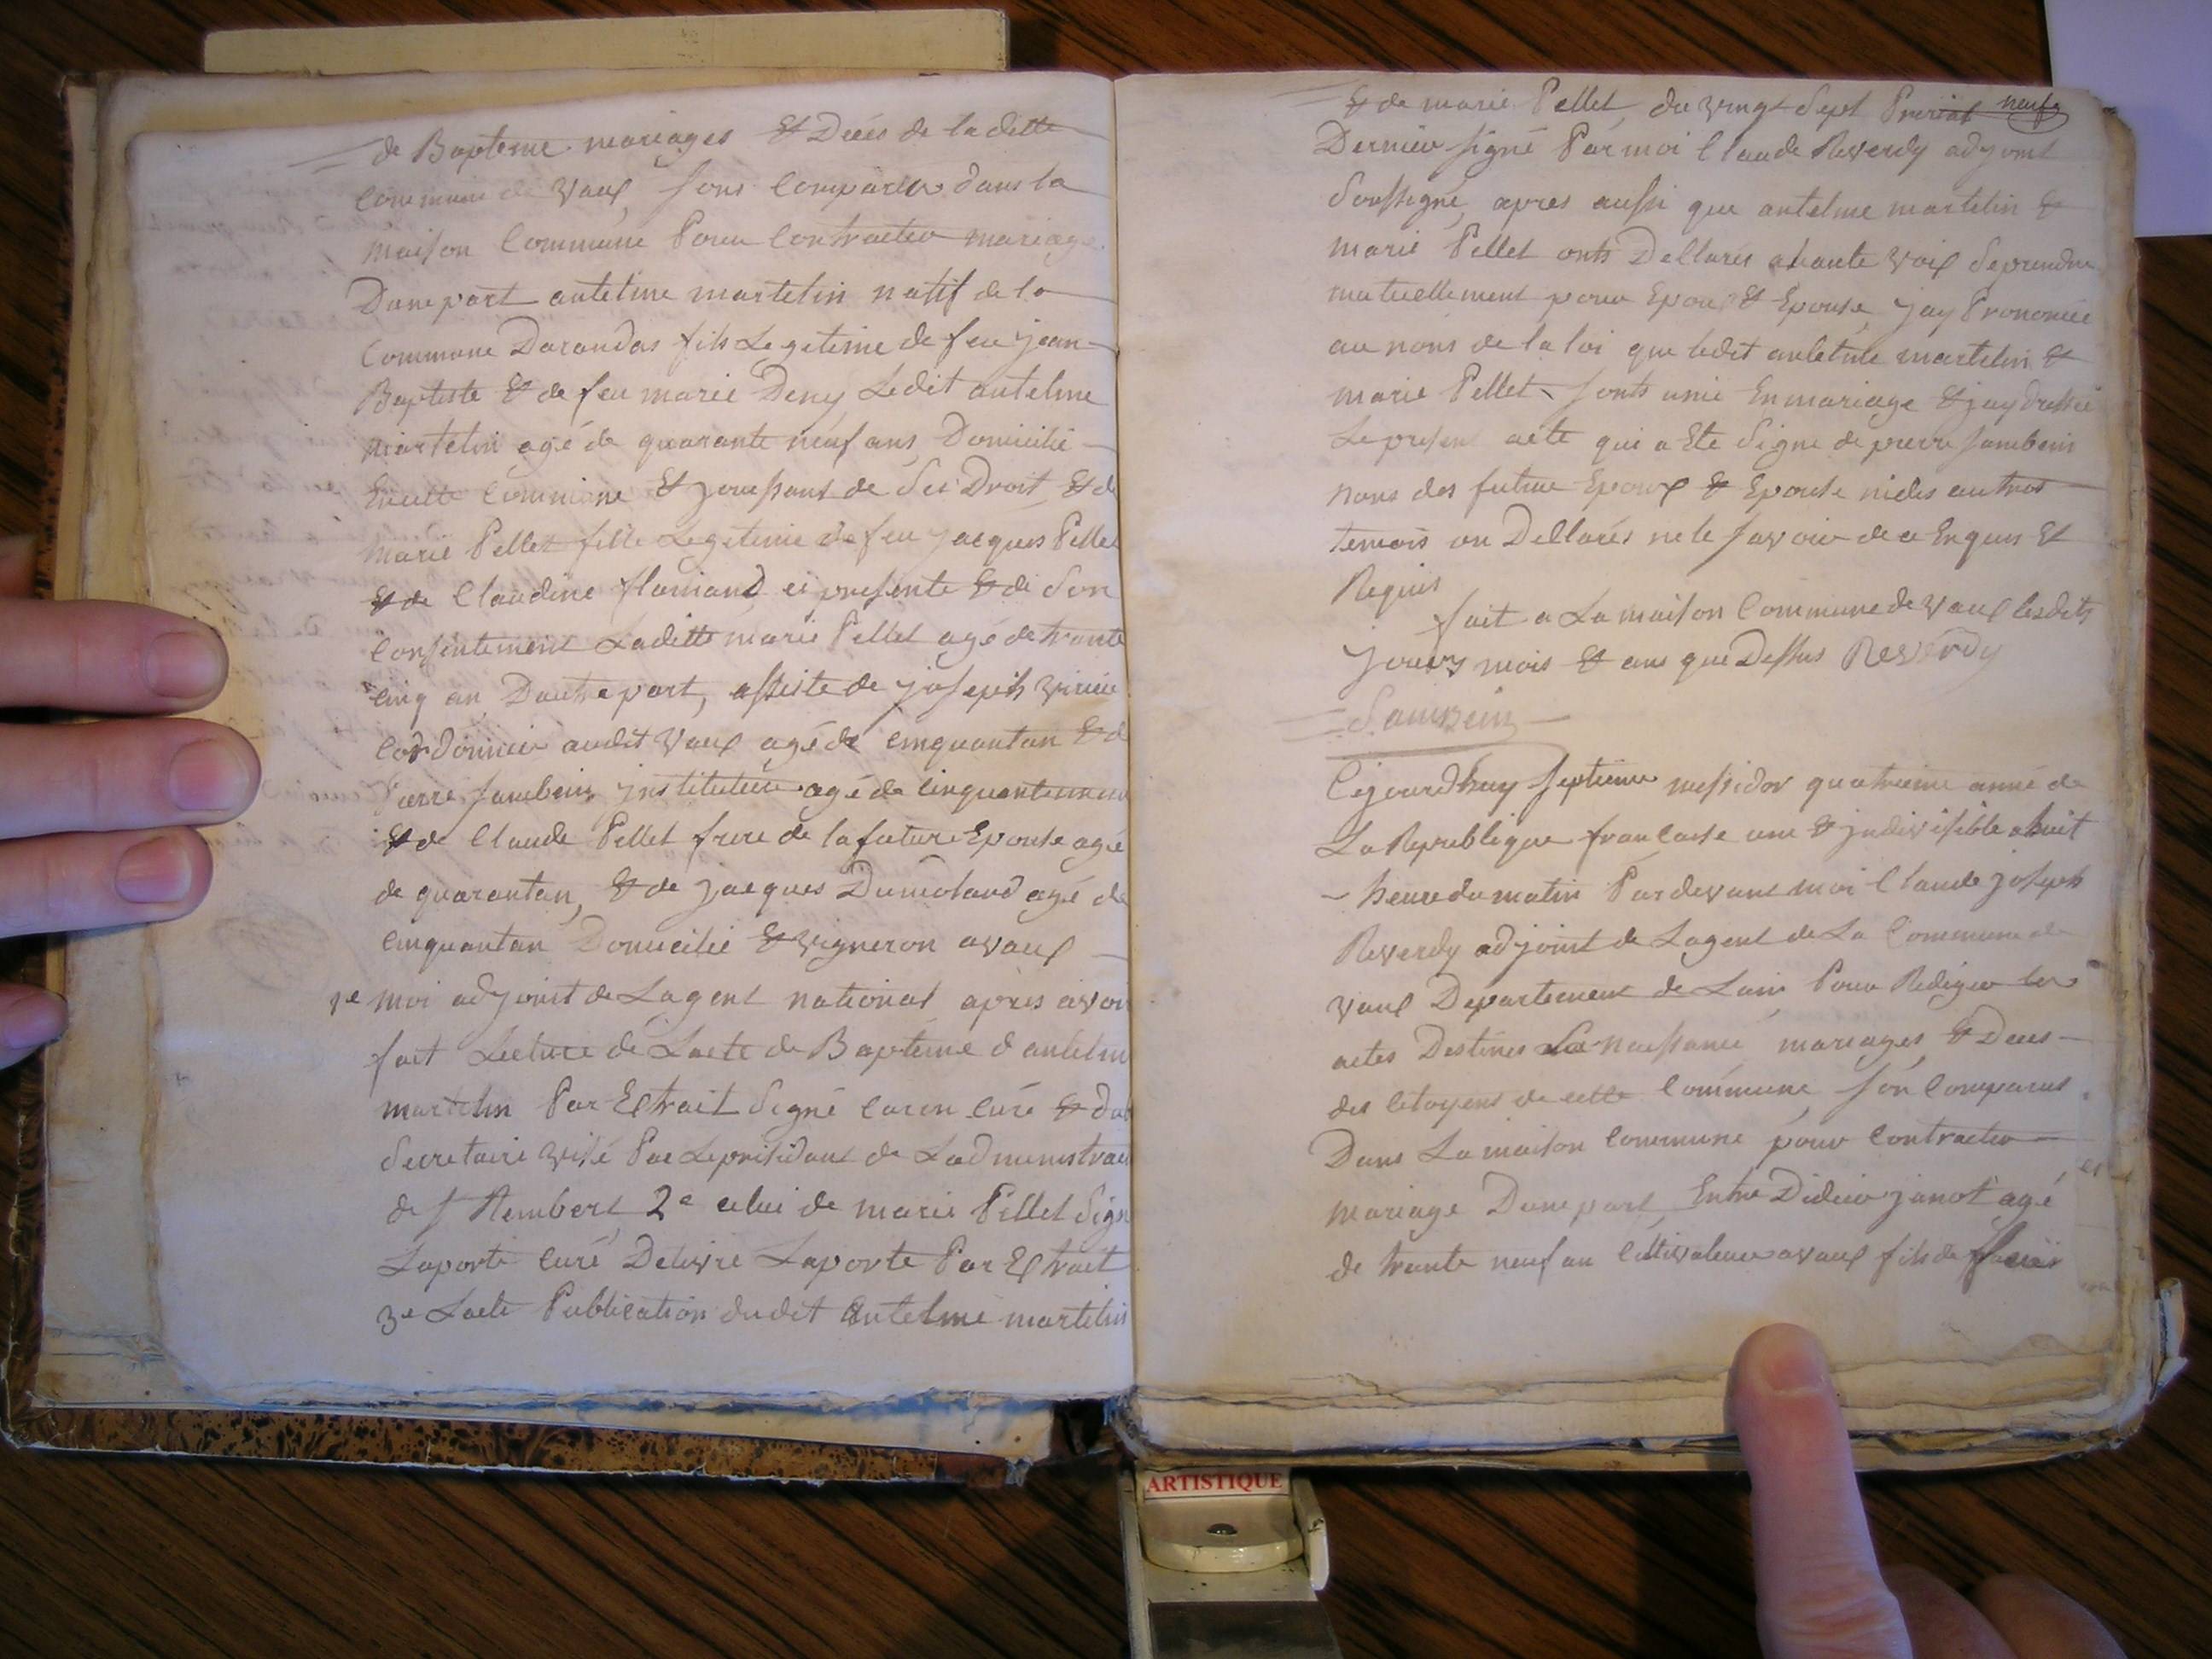 de Bapteme mariages et Decés de ladette
Commune de vaux sons Comparus dans la
maison Commune Pour Contracter mariage
Dune part antelme martelin natif de la
Commune Darandas fils Legetime de feu jean
Baptiste et de feu marie Deny Ledit antelme
martelin agé de quarante neuf ans Domicilié
En cette Commune et jouissant de ses Droit et d
Marie Pellet fille Legetime de feu jacques Pellet
et de Claudine flamand ci presente et de son
Consentement Ladette marie Pellet agé de trante
cinq an Dautre part, assiste de joseph
Cordonnier audit vaux agé de cinquantan et d
Pierre Sambein instituteur agé de Cinquante
et de Claude Pellet frere de la future Epouse agé
de quarantan, et de jacques Dumolard agé de
Cinquantan Domicilié et vigneron a vaux
1e moi adjoint de Lagent national apres avoir
fait Lecture de Lacte de Bapteme d antelme
martelin Par Extrait Signé caron curé et
Secretaire visé Par Le presidant de Ladmenistrau
de St Rembert 2e celui de marie Pellet Sign
Laporte curé Delivré Laporte Par Extrait
3e Lacte Publication dudit antelme martelin
et de marie Pellet du vingt Sept Prerial neuf
Dernier signé Par moi Claude Reverdy adjoint
Soussigné, apres aussi que antelme martelin et
marie Pellet onts Dellarés a haute voix se prendre
mutuellement pour Epoux et Epouse, jay Prononcée
au noms de la loi que ledit antelme martelin et
marie Pellet sonts unie En mariage et jay dressée
Le present acte qui a Ete Signe de pierre Sambein
nons des future Epoux et Epouse ni des autres
temois on Dellarés ne le savoir de ce Enquis et
Requis
fait a La maison Commune de vaux lesdits
jours mois et ans que Dessus Reverdy
Sambein
Cejourdhuy septieme messidor quatrieme anné de
La Republique francaise une et jndivisible a huit
heure du matin Pardevant moi Claude joseph
Reverdy adjoint de Lagent de La Commune de
vaux Departement de Lain Pour Rediger les
actes Destinés La naissance mariages et Deces
des Citoyens de cette Commune son Comparus
Dans La maison Commune pour Contracter
mariage Dune part Entre Didier janot agé
de trante neuf an Cultivateur a vaux fils de
ARTISTIQUE